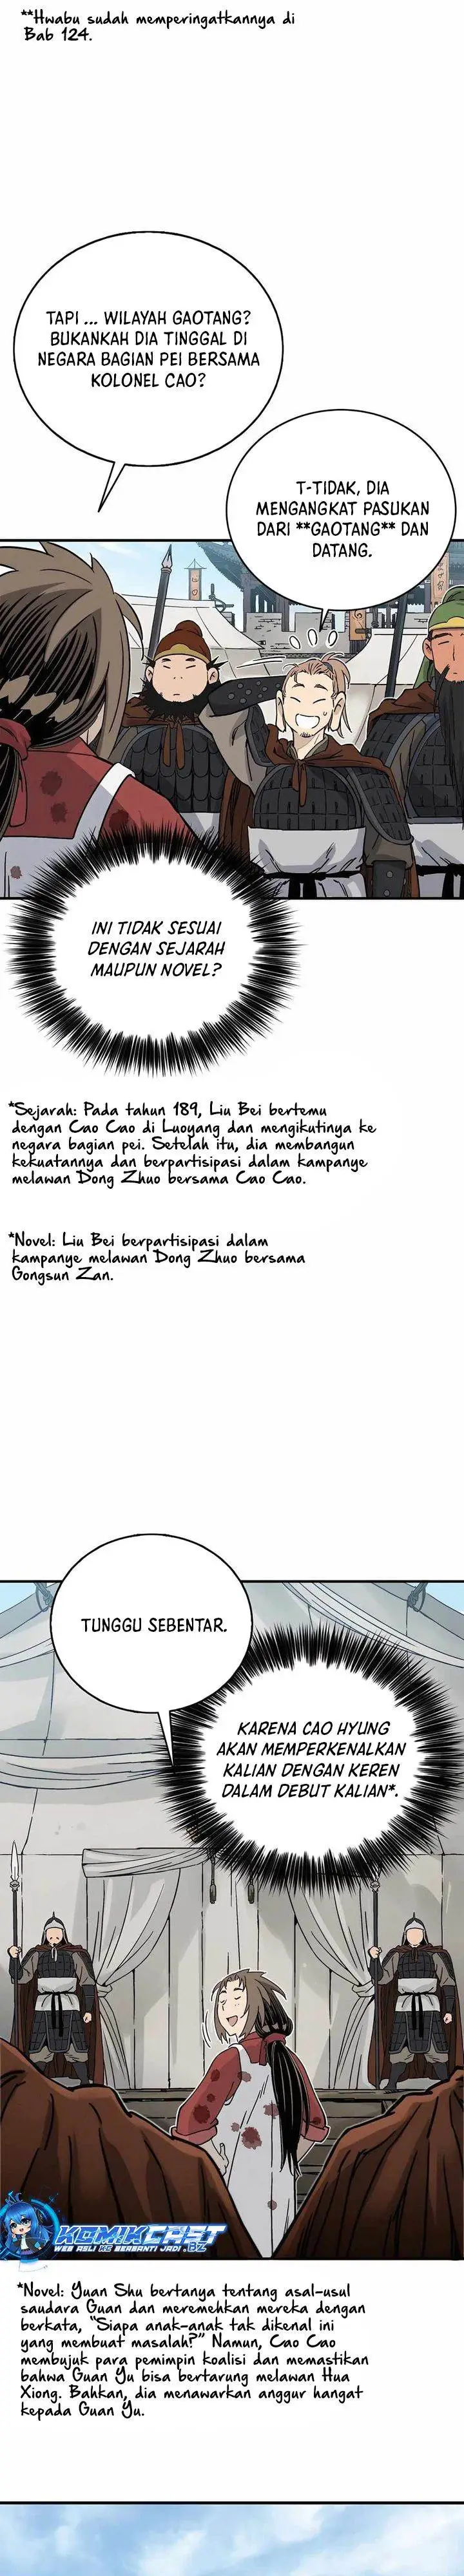 **Hwabu sudah memperingatkannya di
Bab 124.
TAPI ... WILAYAH GAOTANG?
BUKANKAH DIA TINGGAL DI
NEGARA BAGIAN PEI BERSAMA
KOLONEL CAO?
T-TIDAK, DIA
MENGANGKAT PASUKAN
DARI **GAOTANG** DAN
DATANG.
INI TIDAK SESUAI
DENGAN SEJARAH
MAUPUN NOVEL?
*Sejarah: Pada tahun 189, Liu Bei bertemu
dengan Cao Cao di Luoyang dan mengikutinya ke
negara bagian pei. Setelah itu, dia membangun
kekuatannya dan berpartisipasi dalam kampanye
melawan Dong Zhuo bersama Cao Cao.
*Novel: Liu Bei berpartisipasi dalam
kampanye melawan Dong Zhuo bersama
Gongsun Zan.
TUNGGU SEBENTAR.
KARENA CAO HYUNG
AKAN MEMPERKENALKAN
KALIAN DENGAN KEREN
DALAM DEBUT KALIAN*.
KOMIKCAST
WEB ASLI KC BERGANTI JADI .BZ
*Novel: Yuan Shu bertanya tentang asal-usul
saudara Guan dan meremehkan mereka dengan
berkata, "Siapa anak-anak tak dikenal ini
yang membuat masalah?" Namun, Cao Cao
membujuk para pemimpin koalisi dan memastikan
bahwa Guan Yu bisa bertarung melawan Hua
Xiong. Bahkan, dia menawarkan anggur hangat
kepada Guan Yu.